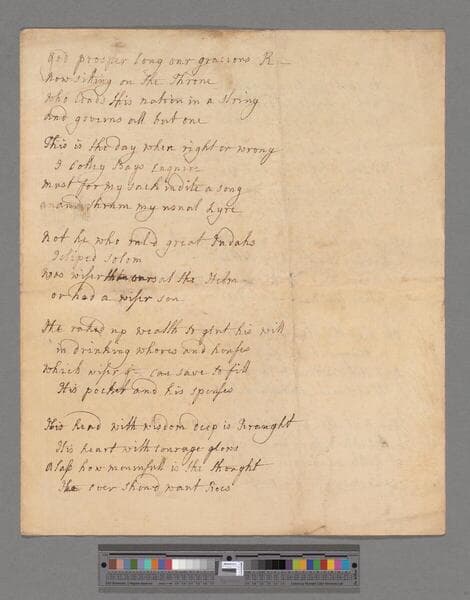 God prosper long our gracious K—
Now sitting on the Throne
Who leads this nation in a string
And governs all but one
This is the day when right or wrong
I Colley Bays Esquire
Must for my sack indite a song
and thrum my usual Lyre
Not he who rul'd great Judahs
Icliped Solom
Was wiser than ours at the Helm
or had a wiser son
He raked up wealth to glut his will
in drinking whores and houses
Which wiser G— can save to fill
His pocket and his spouses
His head with wisdom deep is fraught
His heart with courage glows
Alass how mournfull is the thought
He ever shoud want